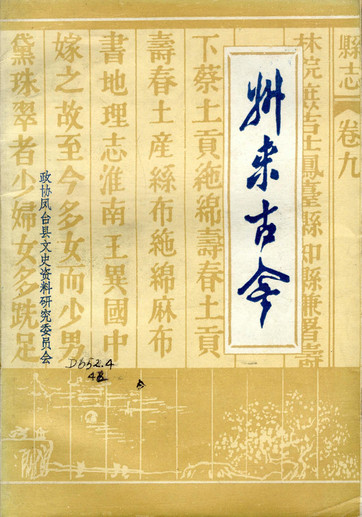 縣志 卷九
林院庶吉士鳳臺縣知縣兼署壽
州来古今
下蔡土貢絁綿壽春土貢
壽春土產絲布絁綿麻布
書地理志淮南王異國中
嫁之故至今多女而少男
黛珠翠者少婦女多跣足
政协凤台县文史资料研究委员会
D652.4